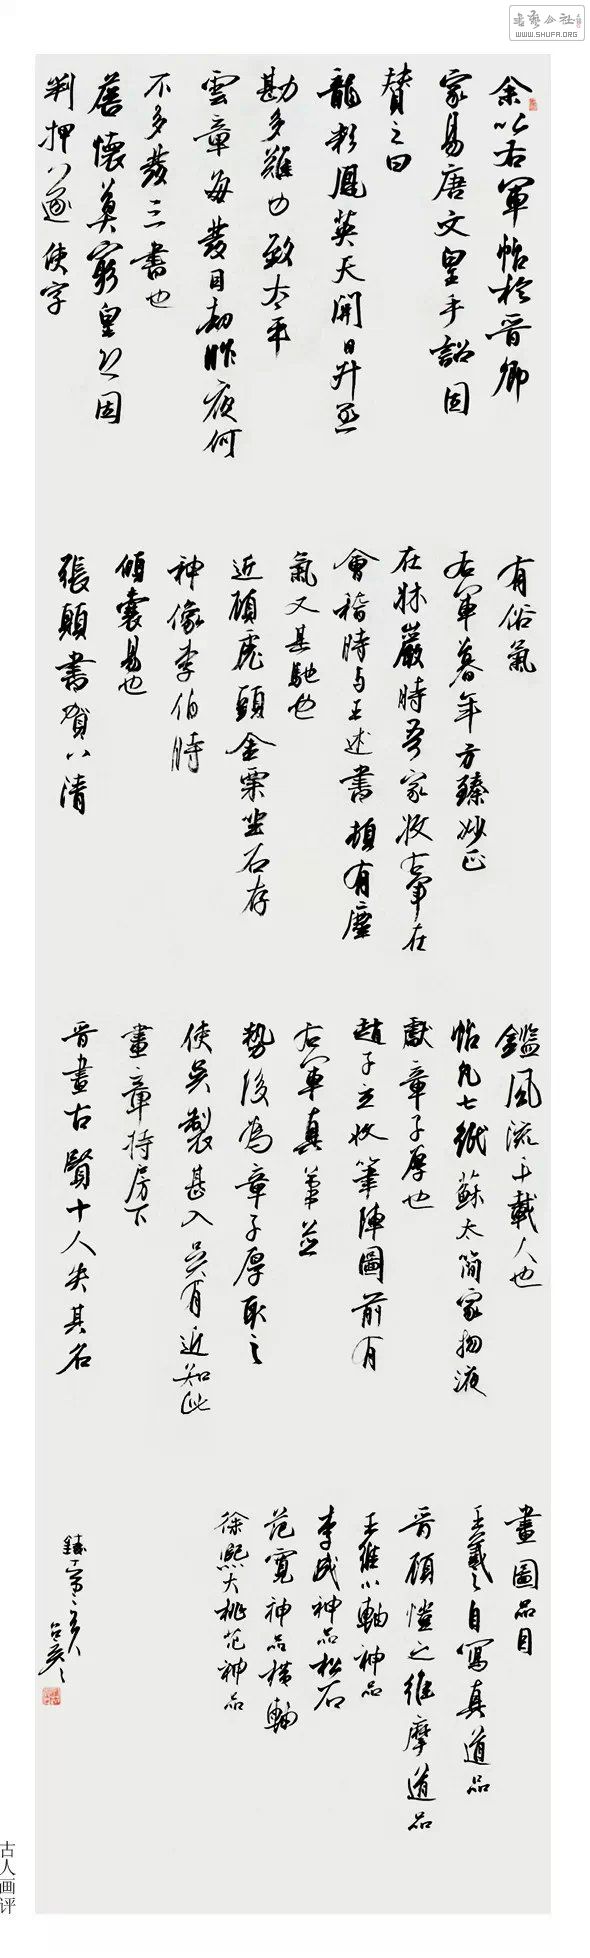 書藝公社
WWW.SHUFA.ORG
余以右軍帖於晋卿
家易唐文皇手詔因
賛之曰
龍彩鳳英天開日升丕
勘多難力致太平
雲章每發目劫眵夜何
不多發三書也
舊懷莫窮皇之因
判押以遂使字
有俗氣
右軍暮年方臻妙正
在牀巖時吾家收古筆在
會稽時与王述書頓有塵
氣又其馳也
近顧虎頭金粟坐石存
神像李伯時
傾囊易也
張顛書賀八清
鑑風流千載人也
帖凡七紙蘇太簡家物液
獻章子厚也
趙子立收筆陣圖前有
右軍真筆並
勢後為章子厚取之
使吳製甚入吳有近知此
畫章持房下
晋畫古賢十人失其名
畫圖品目
王羲之自寫真道品
晋顧愷之維摩道品
王維小軸神品
李成神品松石
范寬神品橫軸
徐熙大桃花神品
古人画评